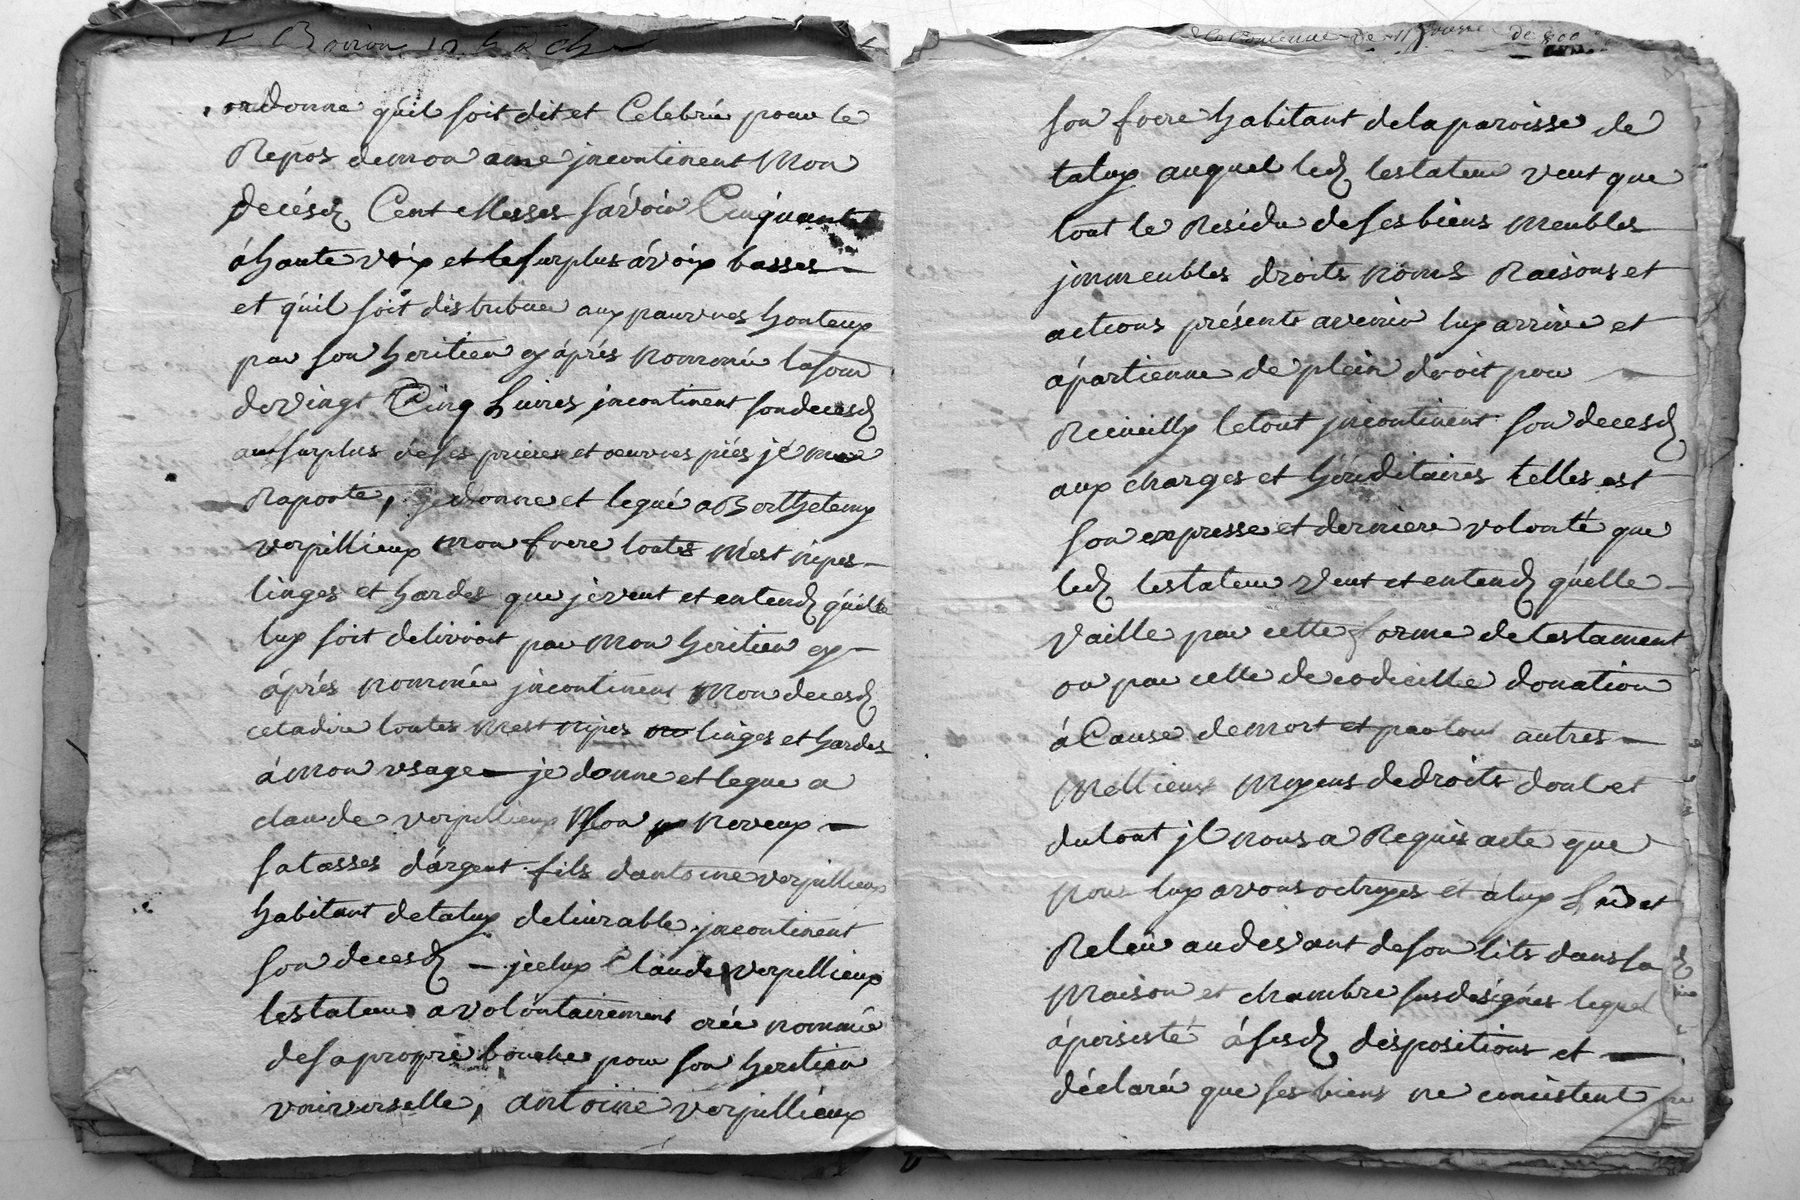 ordonne qu'il soit dit et Celebré pour le
Repos de mon ame jncontinent Mon
decésd Cent Messes sávoir Cinquante
á haute voix et le surplus á voix basses
et qu'il soit distribuer aux pauvres honteux
par son heritier cy áprés nommé la som
de vingt Cinq Livres jncontinent son decesd
au surplus de ses prieres et oeuvres piés jl me
Raporte, je donne et legué a Barthelemy
verpillieux mon frere toutes mest nipes
linges et hardes que je veut et entend qu'elle
luy soit delivroit par mon heritier cy
áprés nommée jncontinent Mon decesd
cetadire toutes mest nipes linges et hardes
á mon usage je donne et legue a
claude verpillieux son neveux
sa tasses d'argent fils d'antoine verpillieux
habitant de taluy delivrable jncontinent
son decesd jceluy Claude verpillieux
testateur a volontairement créé nommé
de sa propre bouche pour son heritier
vniverselle, antoine verpillieux
son frere habitant de la paroisse de
taluy auquel led testateur veut que
tout le Residu de ses biens meubles
jmmeubles droits noms Raisons et
actions présents avenir luy arrive et
ápartienne de plein droit pour
Recueilly le tout jncontinent son decesd
aux charges et héréditaires telles est
son expresse et derniere volonté que
led testateur veut et entend qu'elle
vaille par cette forme de testament
ou par celle de codicille donation
á Cause de mort et par tout autres
Mellieurs Moyens de droits dont et
du tout jl nous a Requis acte que
nous luy avons octroyes et á luy Lû et
Releu au devant de son lits dans sa
Maison et chambre susdesignés lequel
á persisté á sesd dispositions et
déclaré que ses biens ne consistent